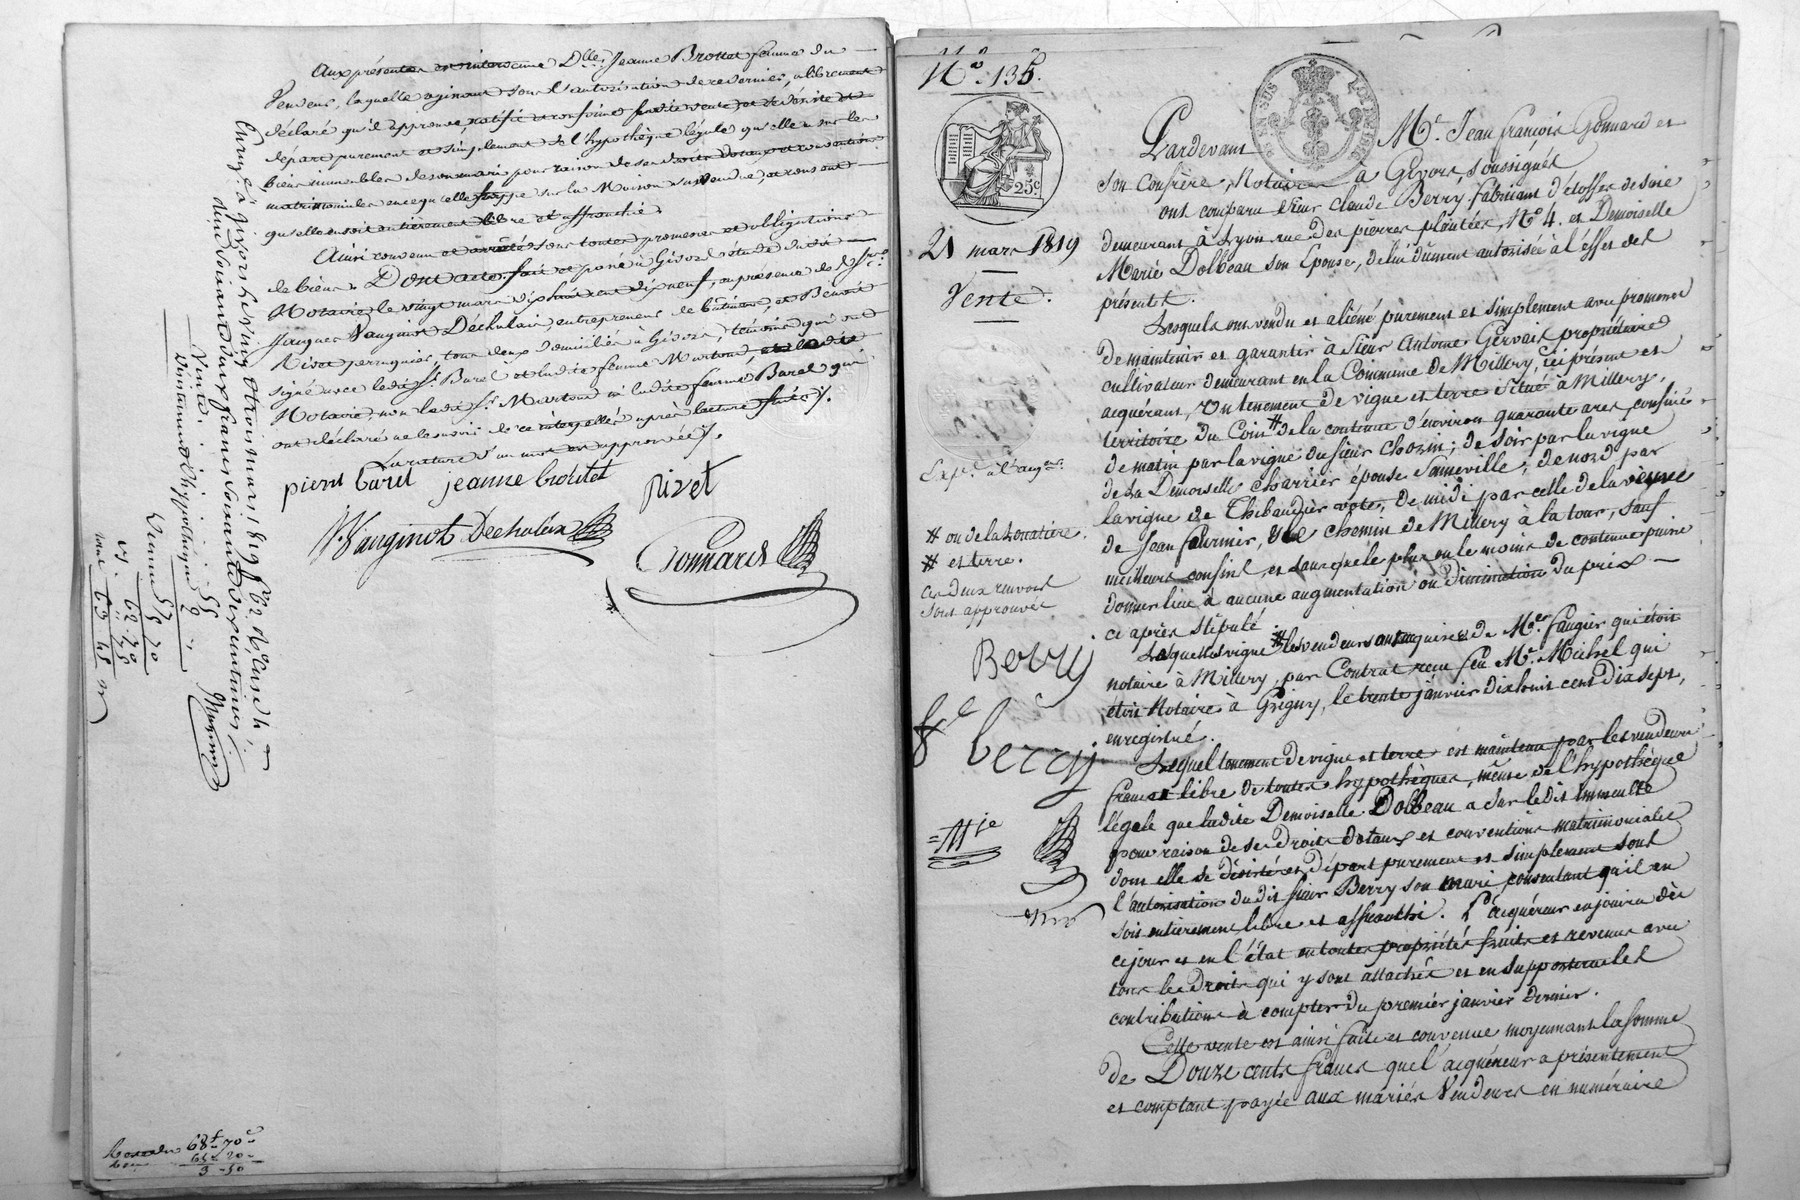 Aux présentes est intervenue Dlle. Jeanne Brottet femme du
Vendeur, laquelle agissant sous l'autorisation de ce dernier, a librement
déclaré qu'elle approuve, ratifie et confirme ladite vente et se désiste et
départ purement et simplement de l'hypothèque légale qu'elle a sur les
biens immeubles de son mari pour raison de ses droits dotaux et conventions
matrimoniales en ce qu'elle frappe sur la Maison susvendue, et consent
qu'elle en soit entièrement libre et affranchie.
Ainsi convenu et arrêté sous toutes promesses et obligations
de biens. Dont acte fait et passé à Givors étude dudit
Notaire le vingt mars dix huit cent dix neuf, en présence de Srs.
Jacques Vauginot Dechulaix entrepreneur de bâtimens, et Benoit
Rivet perruquier, tous deux domiciliés à Givors, témoins qui ont
signé avec ledit Sr. Burel et ladite femme
Notaire non ledit Sr. Martoud ni ladite femme Burel qui
ont déclaré ne le savoir de ce interpellés après lecture faite.
La rature d'un mot est approuvée.
pierre burel jeanne brottet rivet
Vauginot Dechulaix
Gonnard
Enregé. à Givors le vingt trois mars 1819
Vente. 55
Vente 57 20
68f 70c
65 20
3 50
N° 135.
25c
21 mars 1819
Vente.
Pardevant Me. Jean françois Gonnard et
son Confrère, Notaires à Givors, soussignés
ont comparu Sieur Claude Berry fabricant d'étoffes de soie
demeurant à Lyon rue des pierres plantées, N° 4. et Demoiselle
Marie Dolbeau son Epouse, de lui dûment autorisée à l'effet des
présentes.
Lesquels ont vendu et aliéné purement et simplement avec promesse
de maintenir et garantir à Sieur Antoine Gervais propriétaire
cultivateur demeurant en la Commune de Millery, ici présent et
acquérant, Un tenement de vigne et terre situé à Millery,
territoire du Coin # de la contenue d'environ quarante ares, confiné
de matin par la vigne du Sieur Chozin; de soir par la vigne
de la Demoiselle Charrier épouse Sameville; de nord par
la vigne de Thibaudier, de midi par celle de la veuve
de Jean fournier, chemin de Millery à la tour, sauf
meilleurs confins, et sans que le plus ou le moins de contenue puisse
donner lieu à aucune augmentation ou diminution du prix
ci après stipulé.
Laquelle vigne # les vendeurs ont acquise de Me. faugier qui étoit
notaire à Millery, par Contrat reçu feu Me. Michel qui
étoit Notaire à Grigny, le trente janvier dix huit cent dix sept,
enregistré.
Lequel tenement de vigne et terre est maintenu par les vendeurs
franc et libre de toutes hypothèques, même de l'hypothèque
légale que ladite Demoiselle Dolbeau a sur ledit immeuble
pour raison de ses droits dotaux et conventions matrimoniales
dont elle se désiste et départ purement et simplement sous
l'autorisation dudit Sieur Berry son mari, consentant qu'il en
soit entièrement libre et affranchi. L'acquéreur en jouira dès
ce jour et en l'état en toutes propriétés fruits et revenus avec
tous les droits qui y sont attachés et en supportera les
contributions à compter du premier janvier dernier.
Cette vente est ainsi faite et convenue moyennant la somme
de Douze cents francs que l'acquéreur a présentement
et comptant payée aux mariés Vendeurs en numéraire
Expn. à l'acqr.
# ou de la Lonatière.
# et terre.
Ces deux renvois
sont approuvés
Berry
fe berry
Mie